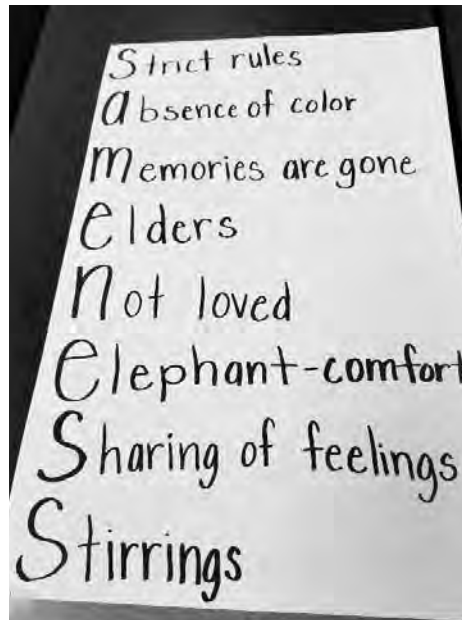 Strict rules
absence of color
memories are gone
elders
not loved
elephant-comfort
Sharing of feelings
Stirrings